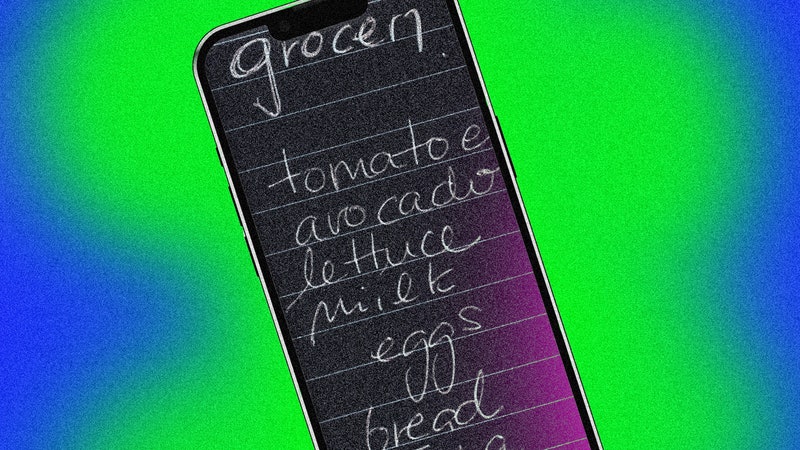 grocery
tomatoe
avocado
lettuce
milk
eggs
bread